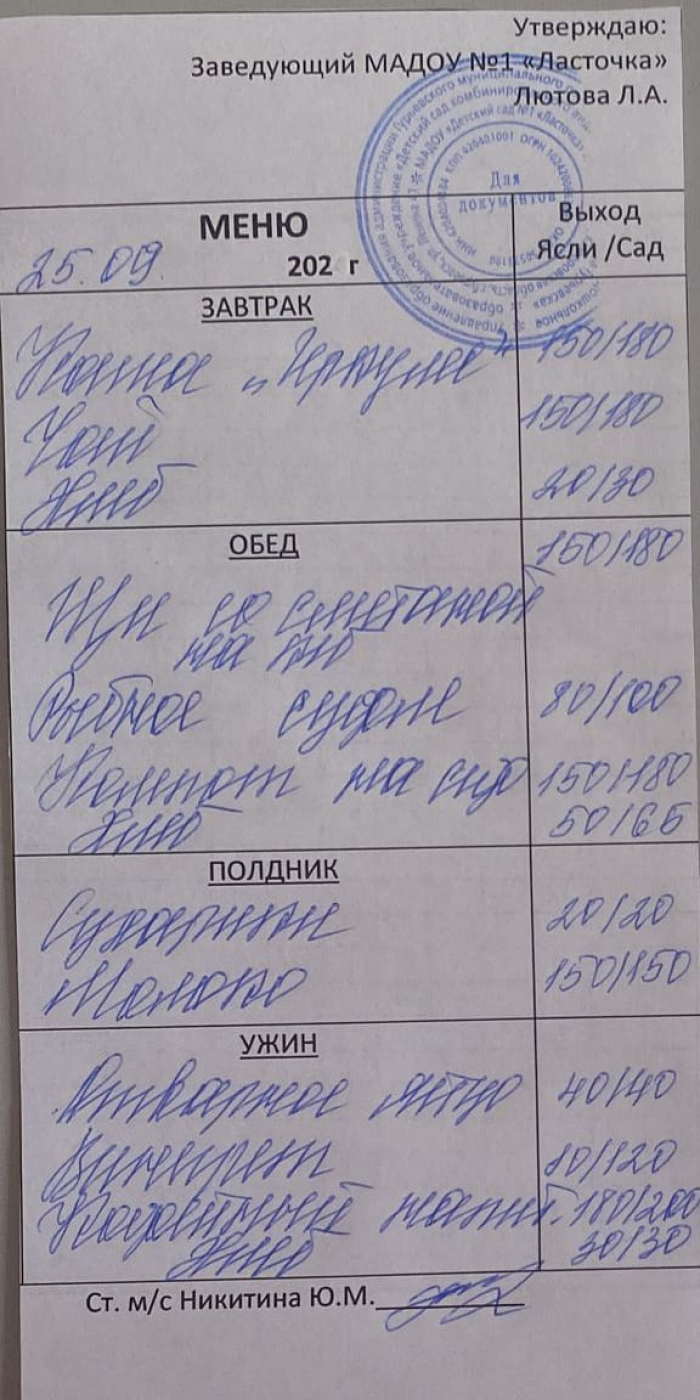 Утверждаю:
Заведующий МАДОУ №1 «Ласточка»
Лютова Л.А.
Для
документов
МЕНЮ
Выход
Ясли /Сад
25.09. 202 г
ЗАВТРАК
Каша „Геркулес" 150/180
Чай 150/180
Хлеб 20/30
ОБЕД 150/180
Щи со сметаной
на м/б
Рыбное суфле 80/100
Компот из с/ф 150/180
Хлеб 50/65
ПОЛДНИК
Сухарики 20/20
Молоко 150/150
УЖИН
Отварное яйцо 40/40
Винегрет /120
Кофейный напит. 180/200
Хлеб 30/30
Ст. м/с Никитина Ю.М.